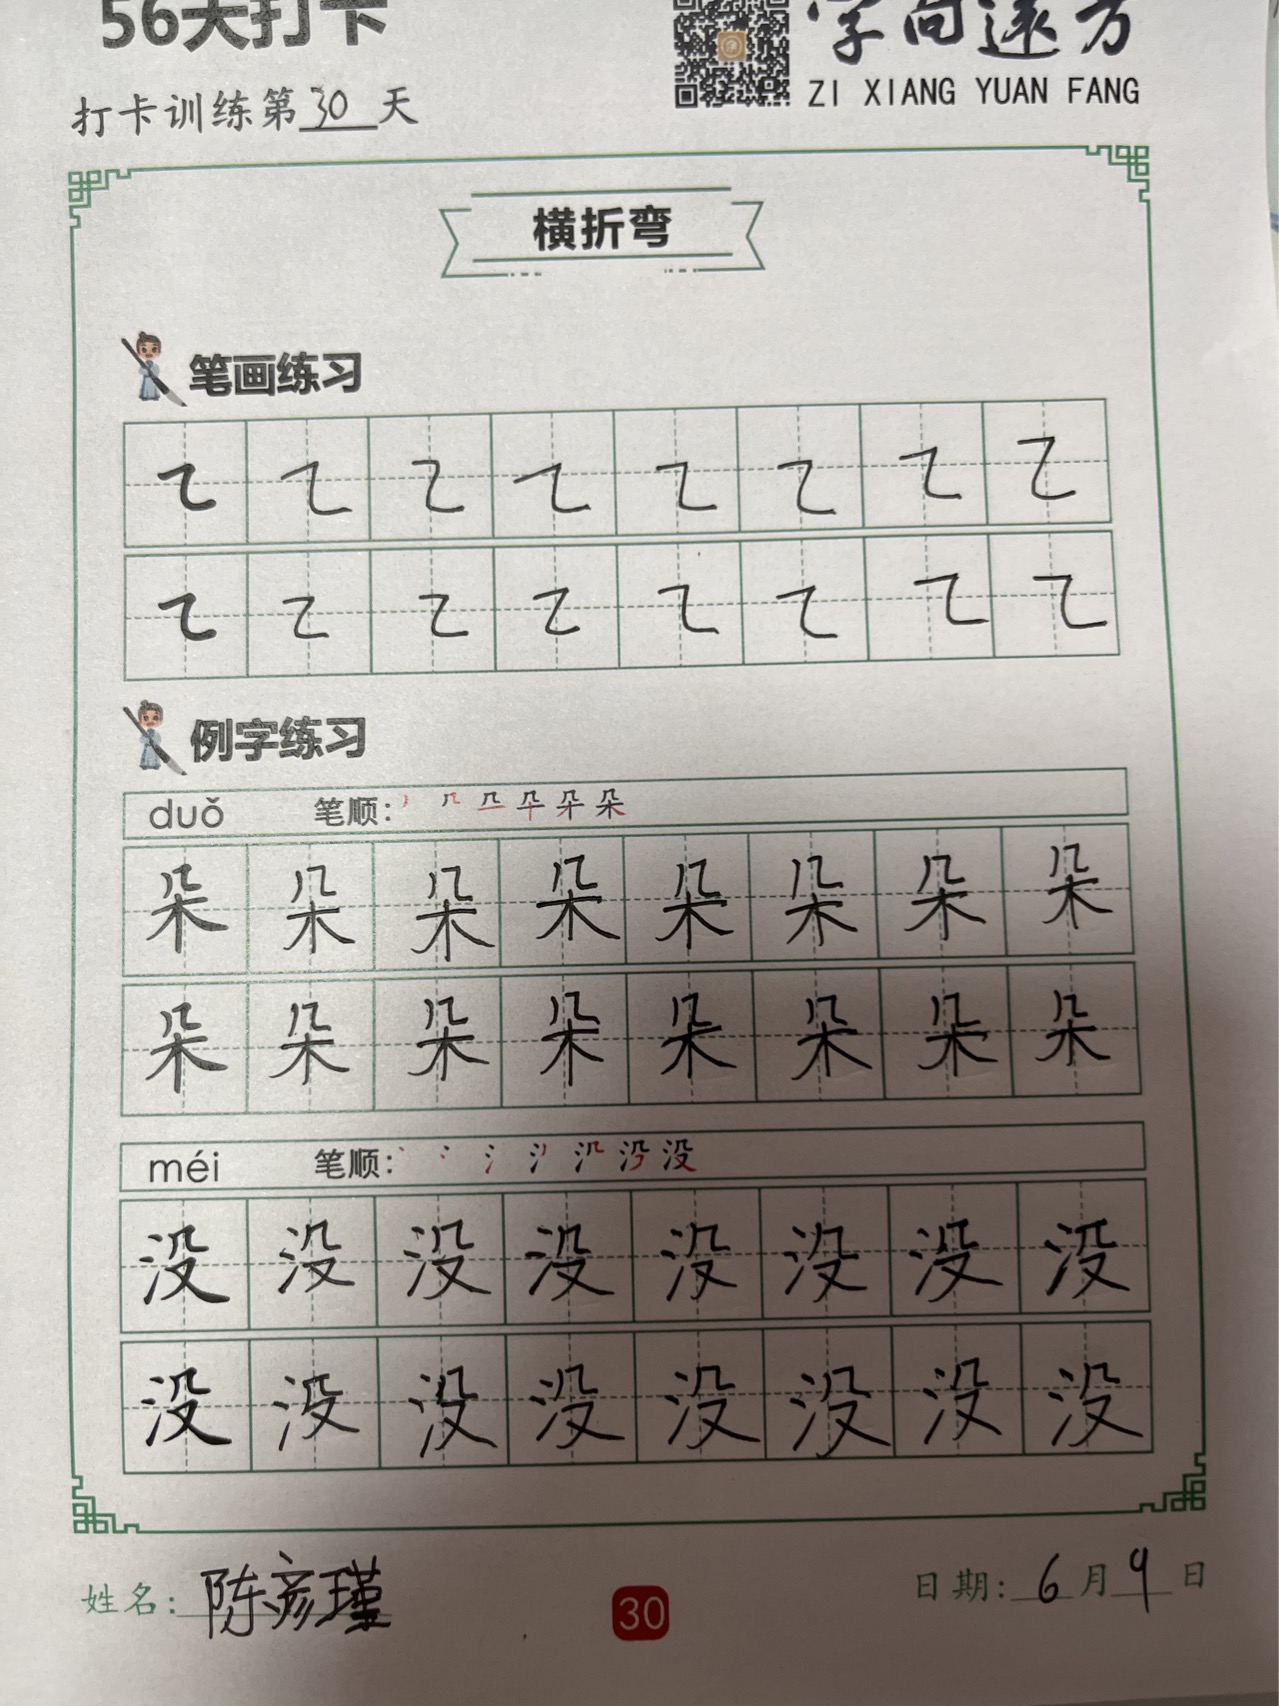 56天打卡
字向远方
ZI XIANG YUAN FANG
打卡训练第30天
横折弯
笔画练习
㇍ ㇍ ㇍ ㇍ ㇍ ㇍ ㇍ ㇍
㇍ ㇍ ㇍ ㇍ ㇍ ㇍ ㇍ ㇍
例字练习
duǒ 笔顺:
朵 朵 朵 朵 朵 朵 朵 朵
朵 朵 朵 朵 朵 朵 朵 朵
méi 笔顺:
没 没 没 没 没 没 没 没
没 没 没 没 没 没 没 没
姓名: 陈彦瑾
30
日期: 6月9日